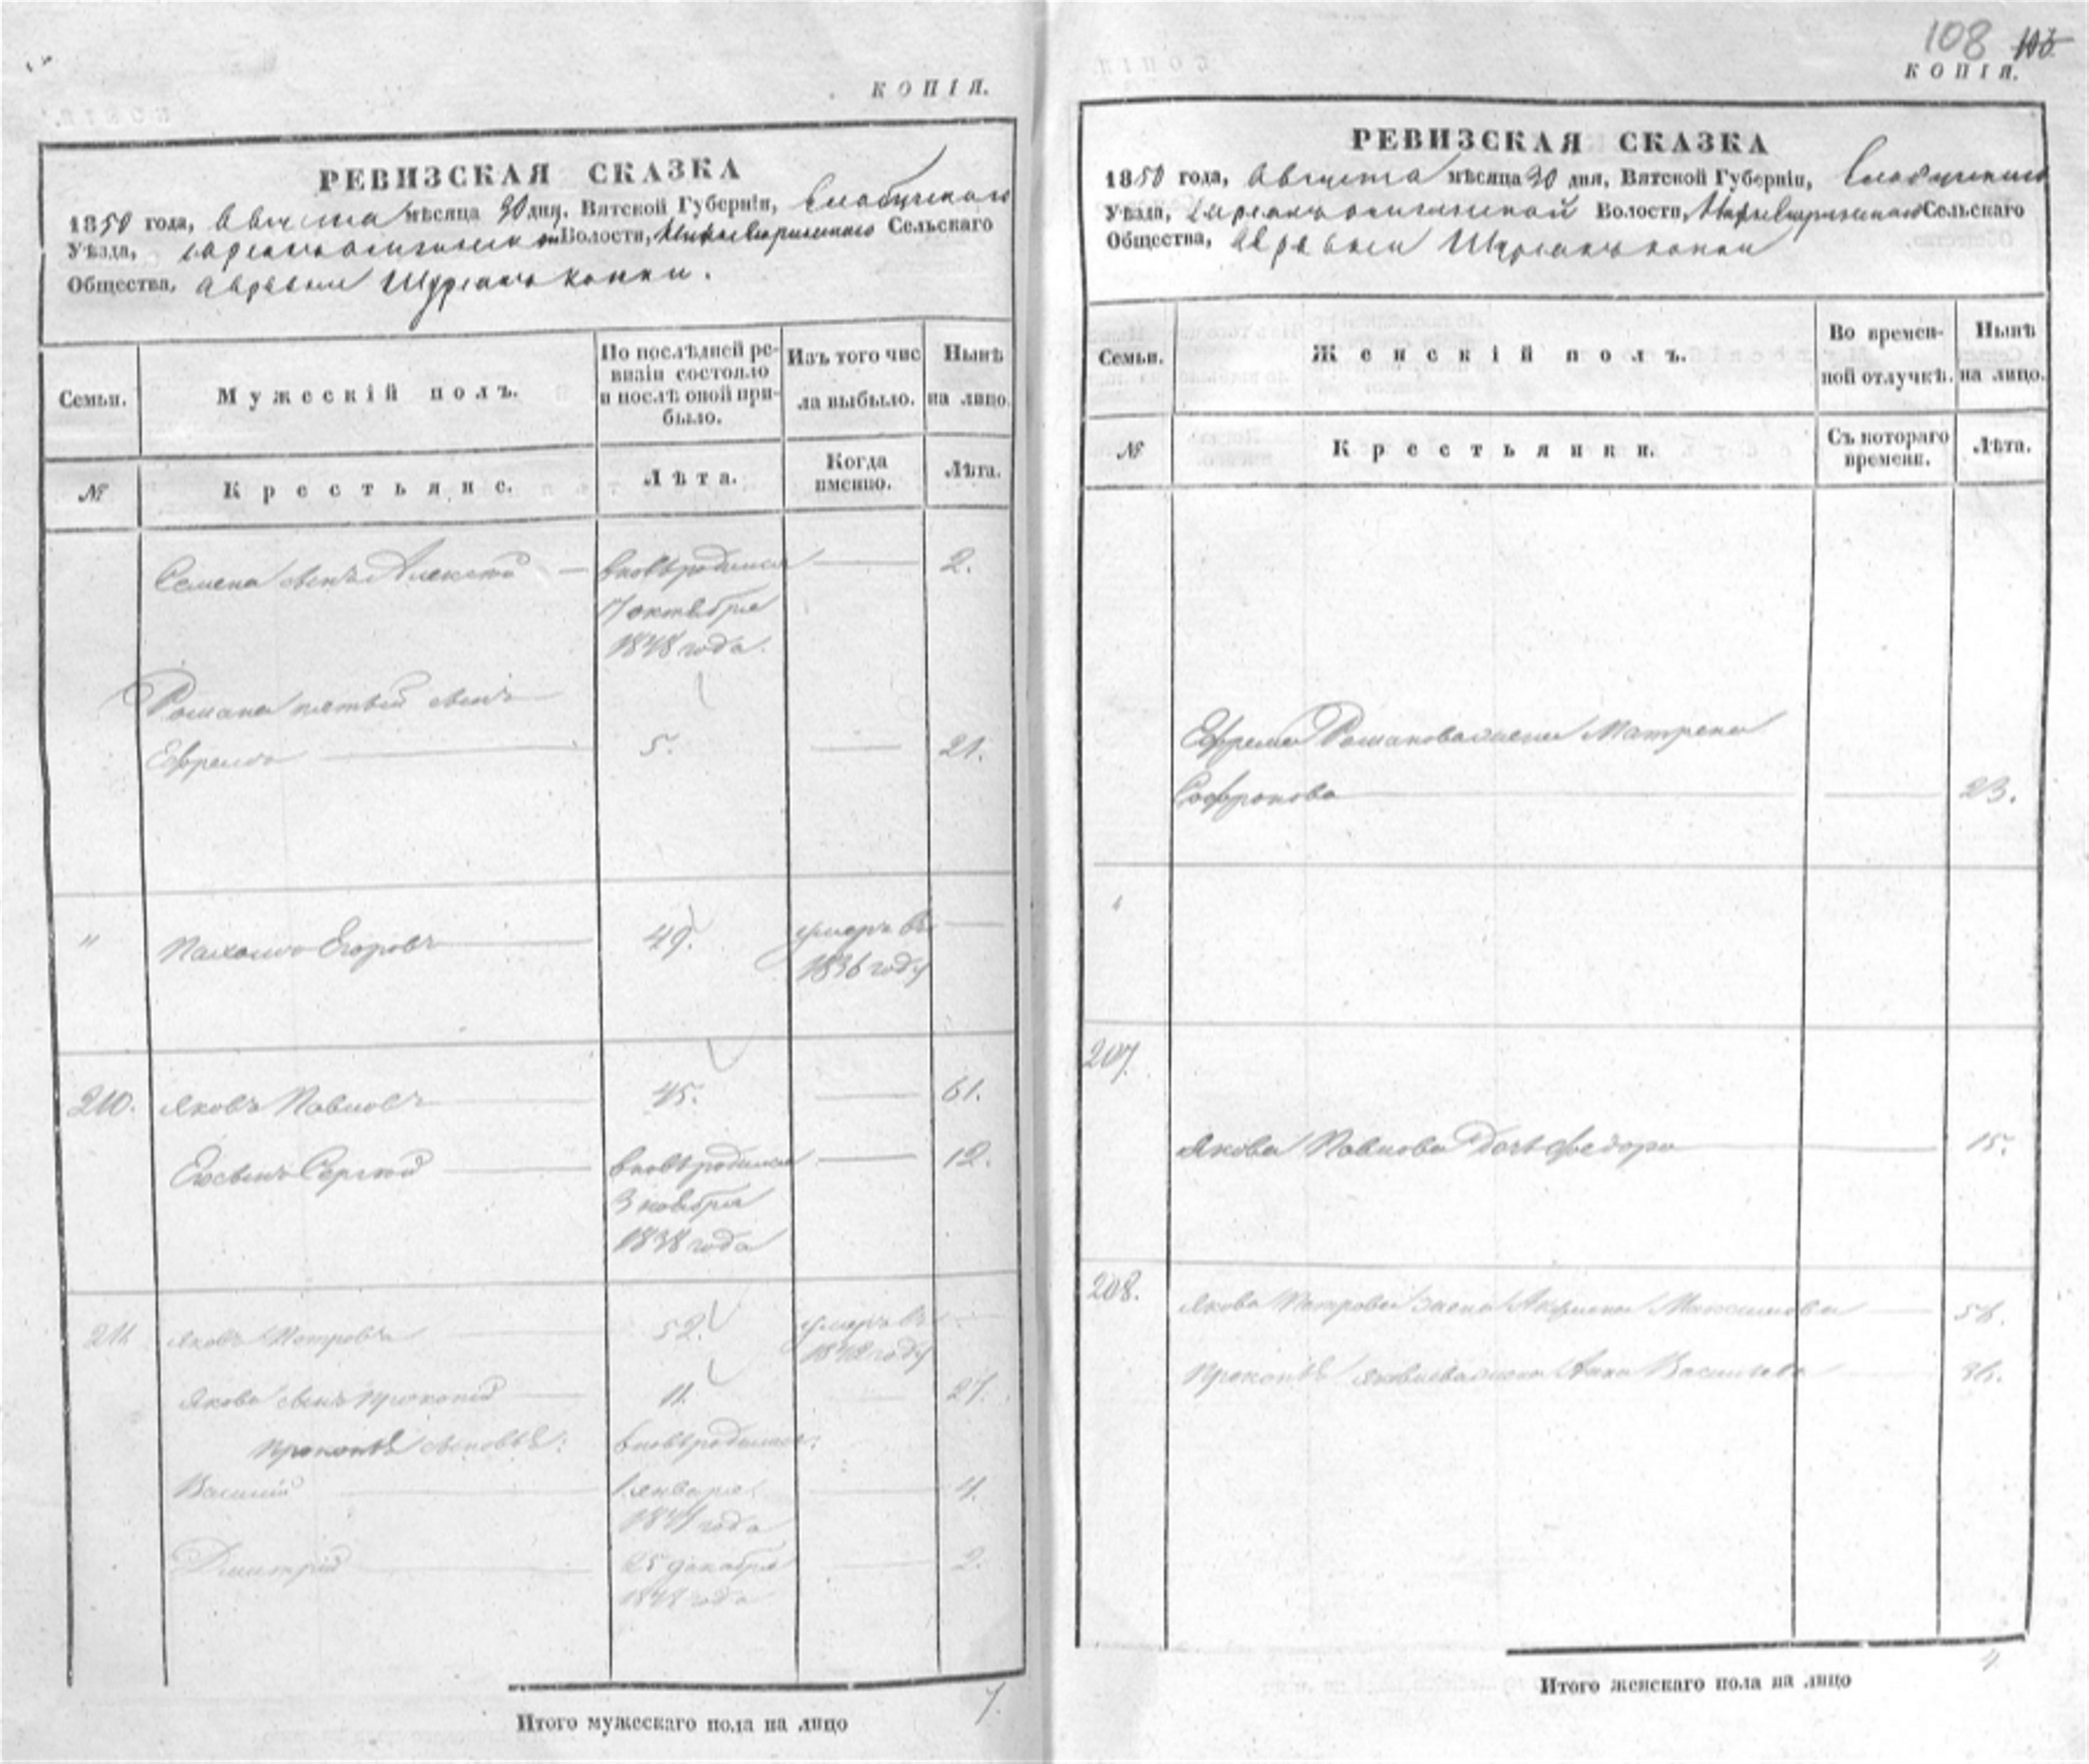 КОПІЯ.
РЕВИЗСКАЯ СКАЗКА
1850 года, Августа мѣсяца 30 дня, Вятской Губерніи,
Уѣзда, Волости, Сельскаго
Общества,
Семьи.
Мужескій полъ.
По послѣдней ре-
визіи состояло
и послѣ оной при-
было.
Изъ того чис
ла выбыло.
Нынѣ
на лицо.
№
Крестьяне.
Лѣта.
Когда
именно.
Лѣта.
Семена сынъ Алексѣй вновьродился 2.
17 октября
1848 года.
Романа пятый сынъ
Ефремъ 5. 21.
" Пахомъ Егоровъ 49. умеръ въ
1836 году
210. Яковъ Павловъ 45. 61.
Его сынъ Сергѣй вновьродился 12.
3 ноября
1838 года
211 Яковъ Петровъ 52. умеръ въ
году
Якова сынъ Прокопій 11. 27.
Прокопья сыновья: вновьродились:
Василій 1 января 4.
года
Дмитрій 25 декабря 2.
1848 года
Итого мужескаго пола на лицо 7.
108 103
КОПІЯ.
РЕВИЗСКАЯ СКАЗКА
1850 года, Августа мѣсяца 30 дня, Вятской Губерніи,
Уѣзда, Волости, Сельскаго
Общества,
Семьи.
Женскій полъ.
Во времен-
ной отлучкѣ.
Нынѣ
на лицо.
№
Крестьянки.
Съ котораго
времени.
Лѣта.
Ефрема Романова жена Матрена
Софронова 23.
207.
Якова Павлова дочь Федора 15.
208. Якова Петрова жена Максимова
Прокопья Яковлева жена Анна Васильева
Итого женскаго пола на лицо 4